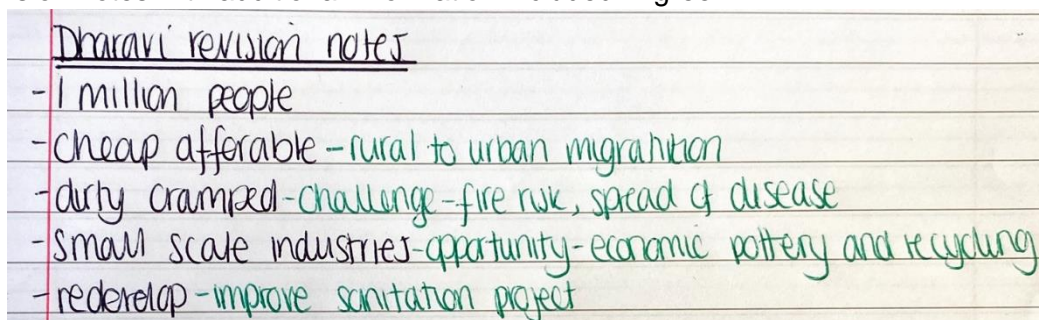 Dharavi revision notes
- 1 million people
- cheap afforable - rural to urban migrantion
- dirty cramped - challenge - fire risk, spread of disease
- small scale industries - opportunity - economic pottery and recycling
- redevelop - improve sanitation project